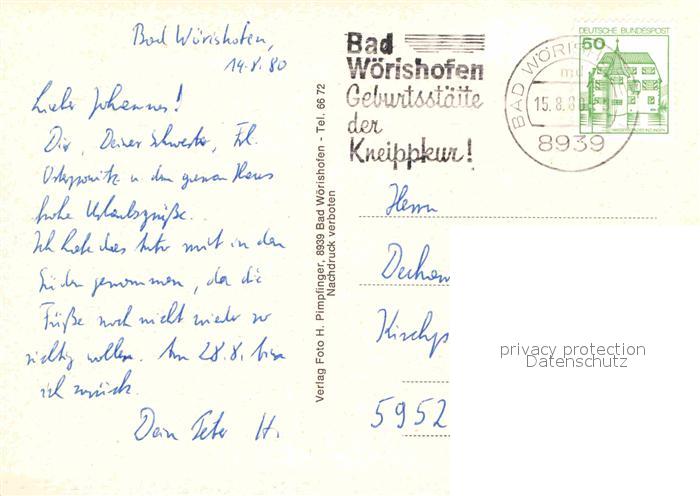 Bad Wörishofen,
14.8.80
Lieber Johannes!
Dir, Deiner Schwester, Frl.
u dem ganzen Haus
frohe Urlaubsgrüße.
Ich habe das Auto mit in den
Süden genommen, da die
Füße noch nicht wieder so
richtig wollen. Am 28.8. bin
ich zurück.
Dein Peter H.
Verlag Foto H. Pimpfinger, 8939 Bad Wörishofen - Tel. 66 72
Nachdruck verboten
Bad
Wörishofen
Geburtsstätte
der
Kneippkur!
BAD WÖRIS
15.8.8
8939
DEUTSCHE BUNDESPOST
50
Herrn
Dechan
Kirchp
5952
privacy protection
Datenschutz